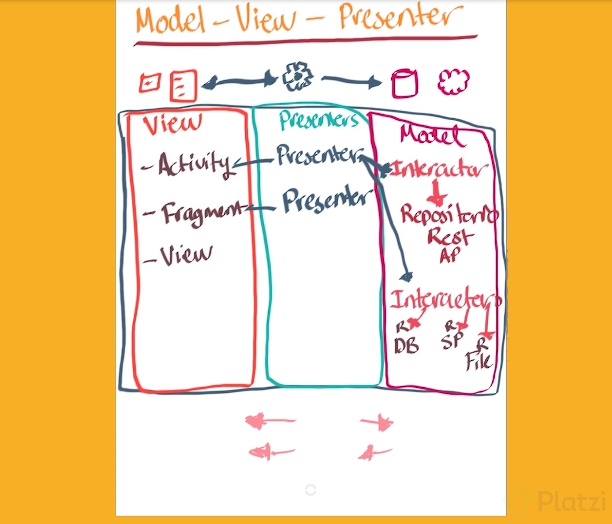 Model - View - Presenter
View
- Activity
- Fragment
- View
Presenters
Presenter
Presenter
Model
Interactor
Repositorio
Rest
AP
Interactor
R
DB
R
SP
R
File
Platzi